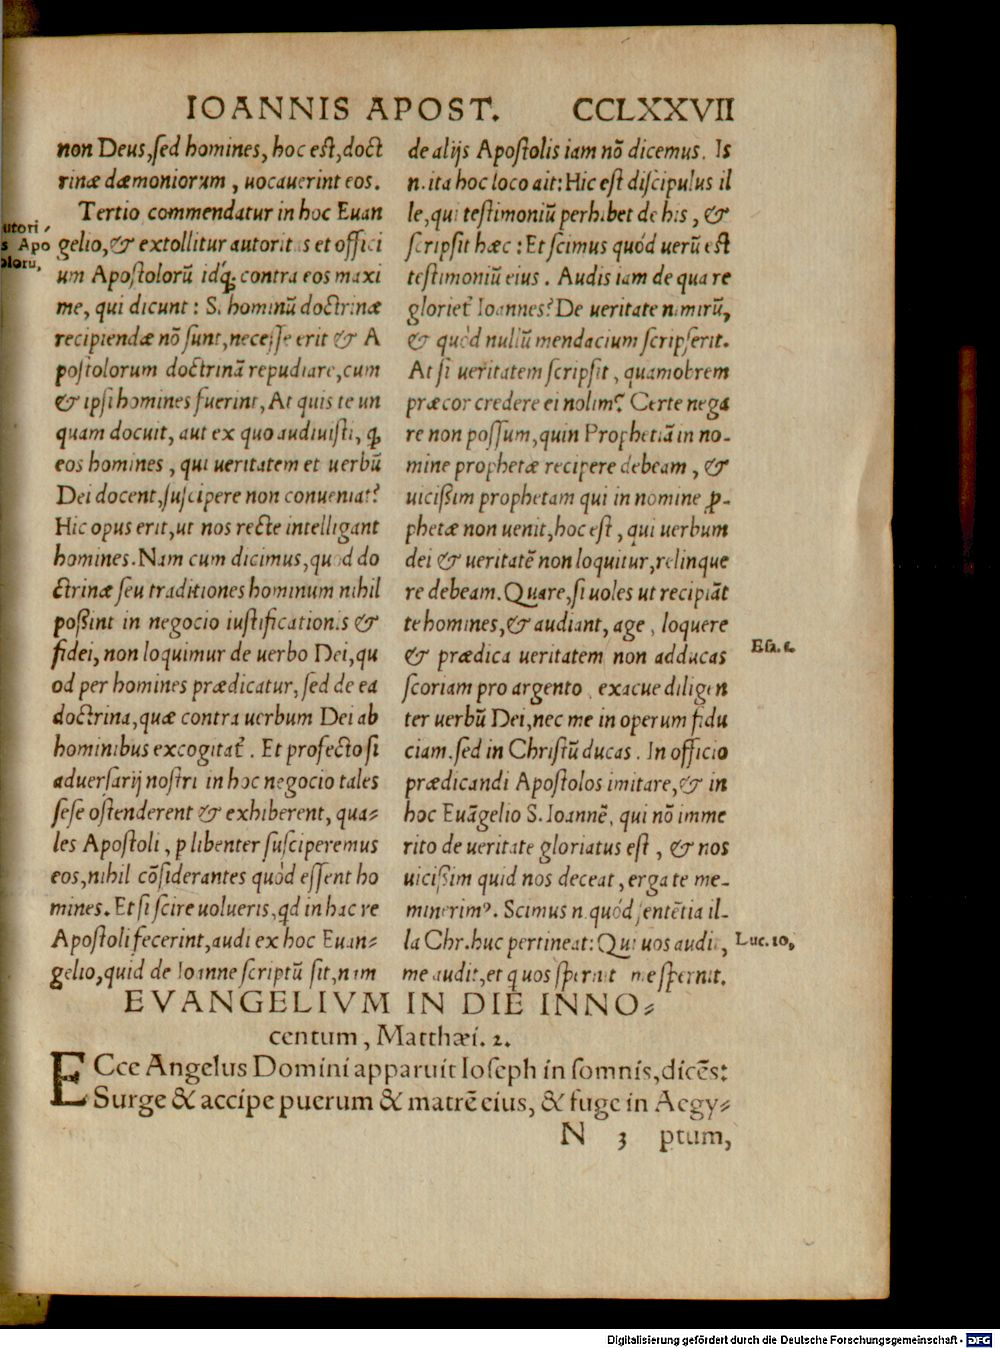 IOANNIS APOST. CCLXXVII
non Deus,sed homines, hoc est,doct
rinæ dæmoniorum , uocauerint eos.
Tertio commendatur in hoc Euan
gelio,& extollitur autoritas et offici
um Apostolorũ idq́; contra eos maxi
me, qui dicunt : Si hominũ doctrinæ
recipiendæ nõ sunt,necesse erit & A
postolorum doctrinã repudiare,cum
& ipsi homines fuerint, At quis te un
quam docuit, aut ex quo audiuisti, ꝙ
eos homines , qui ueritatem et uerbũ
Dei docent,suscipere non conueniat?
Hic opus erit,ut nos recte intelligant
homines. Nam cum dicimus,quod do
ctrinæ seu traditiones hominum nihil
poßint in negocio iustificationis &
fidei, non loquimur de uerbo Dei,qu
od per homines prædicatur, sed de ea
doctrina, quæ contra uerbum Dei ab
hominibus excogitat᷑. Et profecto si
aduersarij nostri in hoc negocio tales
sese ostenderent & exhiberent, qua⸗
les Apostoli , ꝑ libenter susciperemus
eos,nihil cõsiderantes quòd essent ho
mines. Et si scire uolueris, qd in hac re
Apostoli fecerint,audi ex hoc Euan⸗
gelio,quid de Ioanne scriptũ sit,nam
utori⸗
s Apo
oloru,
de alijs Apostolis iam nõ dicemus. Is
n. ita hoc loco ait: Hic est discipulus il
le,qui testimoniũ perhibet de his , &
scripsit hæc : Et scimus quód uerũ est
testimoniũ eius . Audis iam de qua re
gloriet᷑ Ioannes? De ueritate nimirũ,
& quòd nullũ mendacium scripserit.
At si ueritatem scripsit , quamobrem
præcor credere ei nolim⁹? Certe nega
re non possum,quin Prophetiã in no-
mine prophetæ recipere debeam , &
uicißim prophetam qui in nomine ꝓ-
phetæ non uenit,hoc est , qui uerbum
dei & ueritatẽ non loquitur,relinque
re debeam. Quare,si uoles ut recipiãt
te homines,& audiant, age , loquere
& prædica ueritatem non adducas
scoriam pro argento , exacue diligen
ter uerbũ Dei,nec me in operum fidu
ciam,sed in Christũ ducas . In officio
prædicandi Apostolos imitare,& in
hoc Euãgelio S. Ioannẽ, qui nõ imme
rito de ueritate gloriatus est , & nos
uicißim quid nos deceat, erga te me-
minerim⁹. Scimus n. quód sentẽtia il-
la Chr. huc pertineat: Qui uos audit,
me audit,et quos spernit me spernit.
Esa. 1.
Luc. 10,
EVANGELIVM IN DIE INNO⸗
centum, Matthæi. 2.
ECce Angelus Domini apparuit Ioseph in somnis,dicẽs:
Surge & accipe puerum & matrẽ eius, & fuge in Aegy⸗
N 3 ptum,
Digitalisierung gefördert durch die Deutsche Forschungsgemeinschaft - DFG